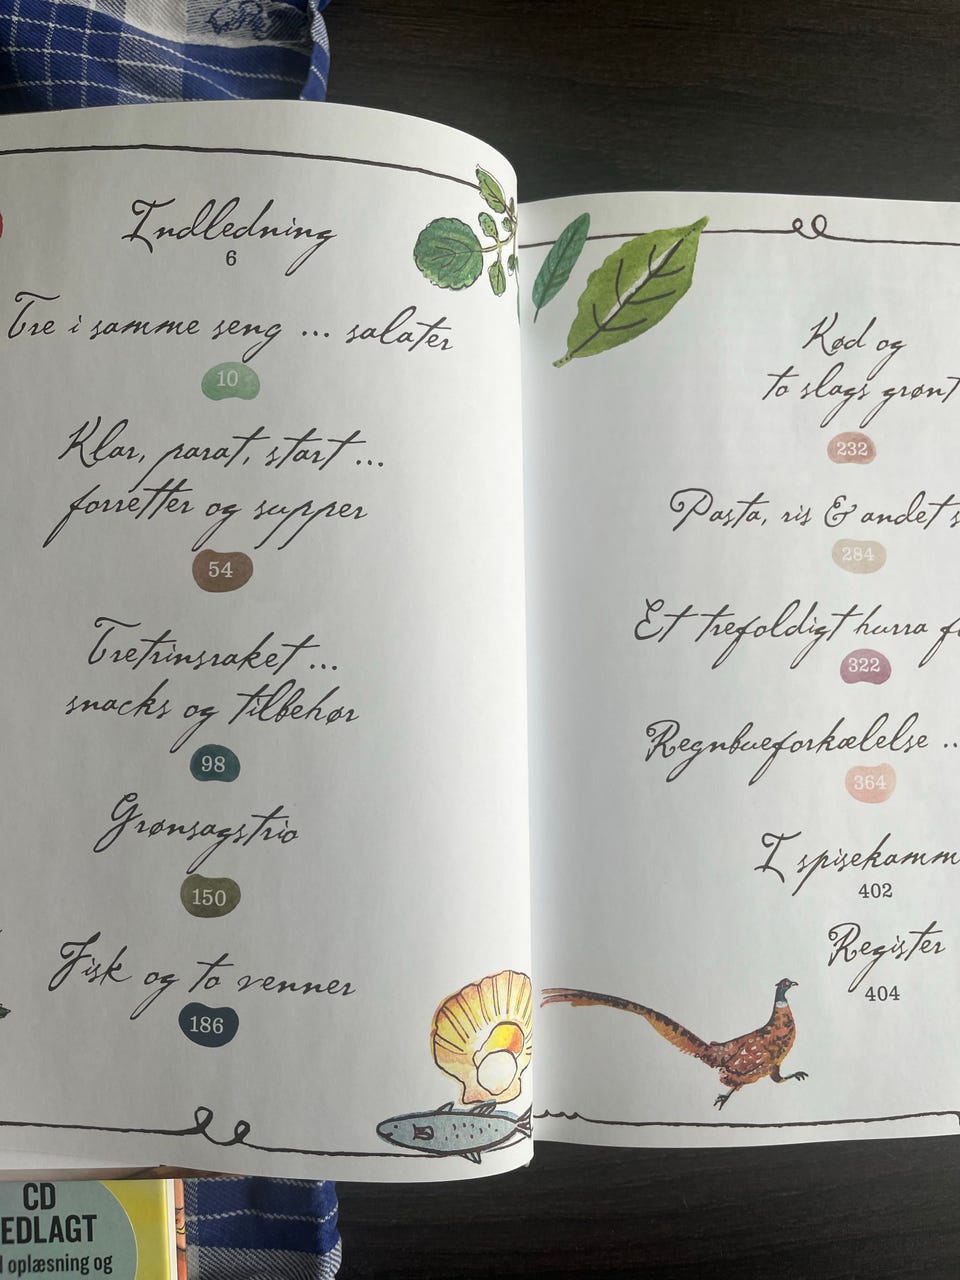 Indledning
6
Tre i samme seng ... salater
10
Klar, parat, start ...
forretter og supper
54
Tretrinsraket ...
snacks og tilbehør
98
Grønsagstrio
150
Fisk og to venner
186
Kød og
to slags grønt
232
Pasta, ris & andet s
284
Et trefoldigt hurra f
322
Regnbueforkælelse ..
364
I spisekamm
402
Register
404
CD
EDLAGT
oplæsning og